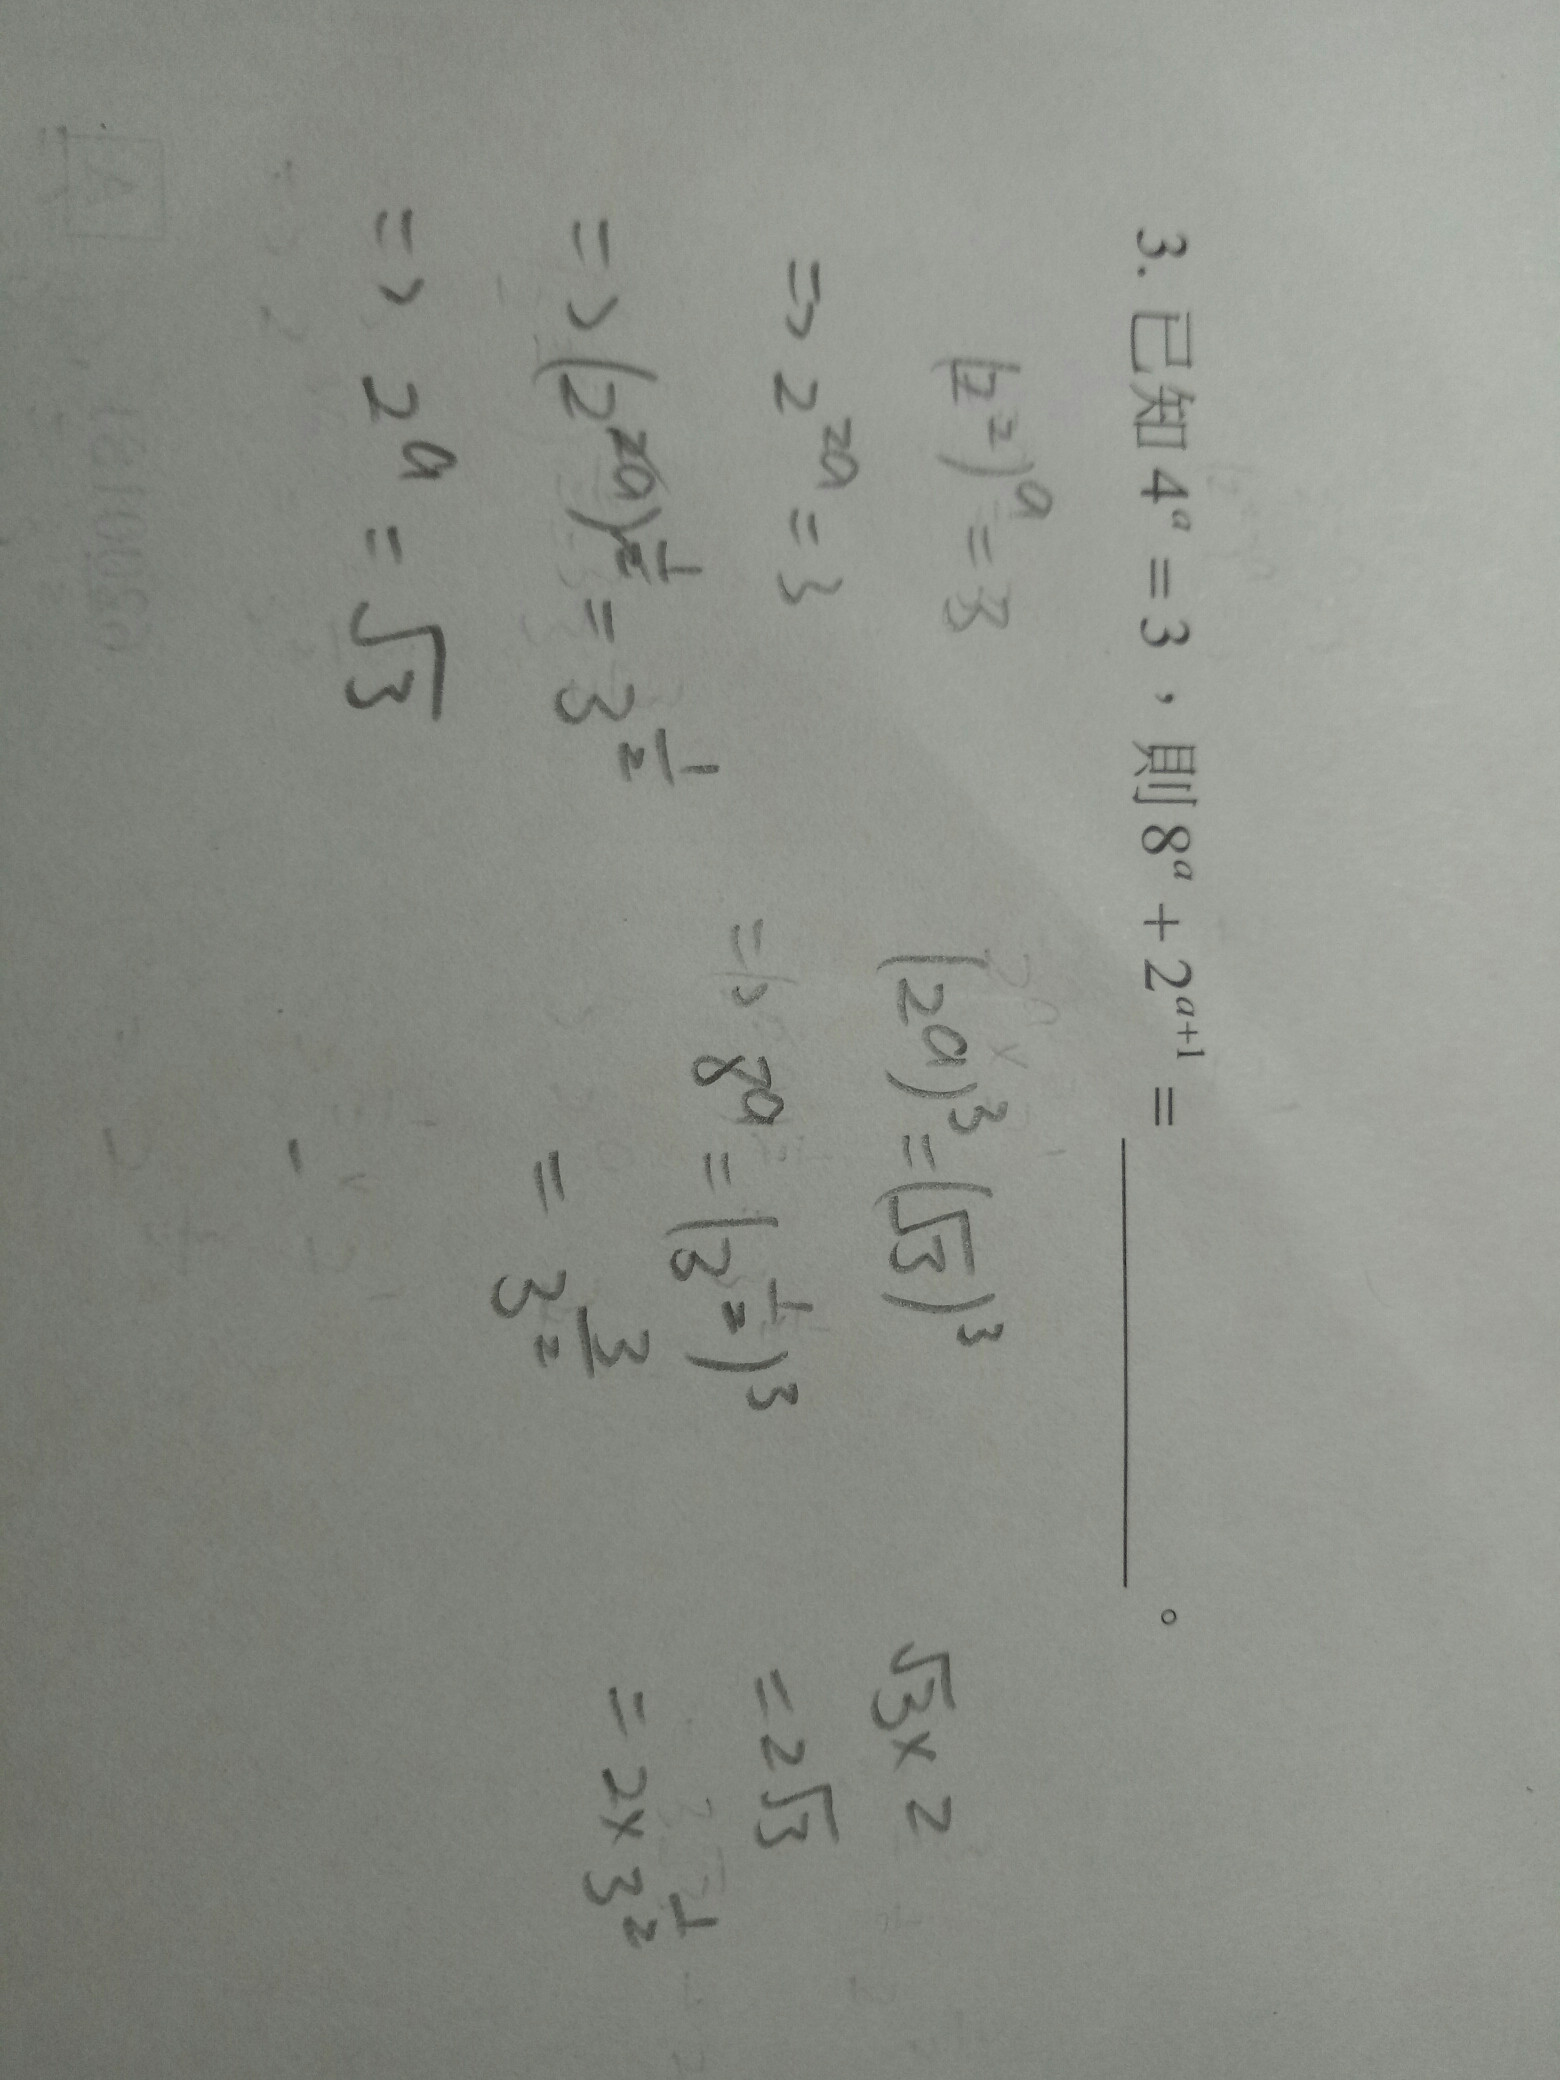 3. 已知 4ᵃ = 3，則 8ᵃ + 2ᵃ⁺¹ = ________。
(2²)ᵃ = 3
=> 2²ᵃ = 3
=> (2²ᵃ)^½ = 3^½
=> 2ᵃ = √3
(2ᵃ)³ = (√3)³
=> 8ᵃ = (3^½)³
= 3^(3/2)
√3 × 2
= 2√3
= 2 × 3^½